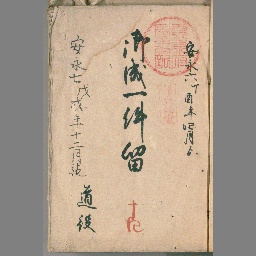 安永六丁酉年四月ゟ
御成一件留
安永七戊戌年十二月迄
道役